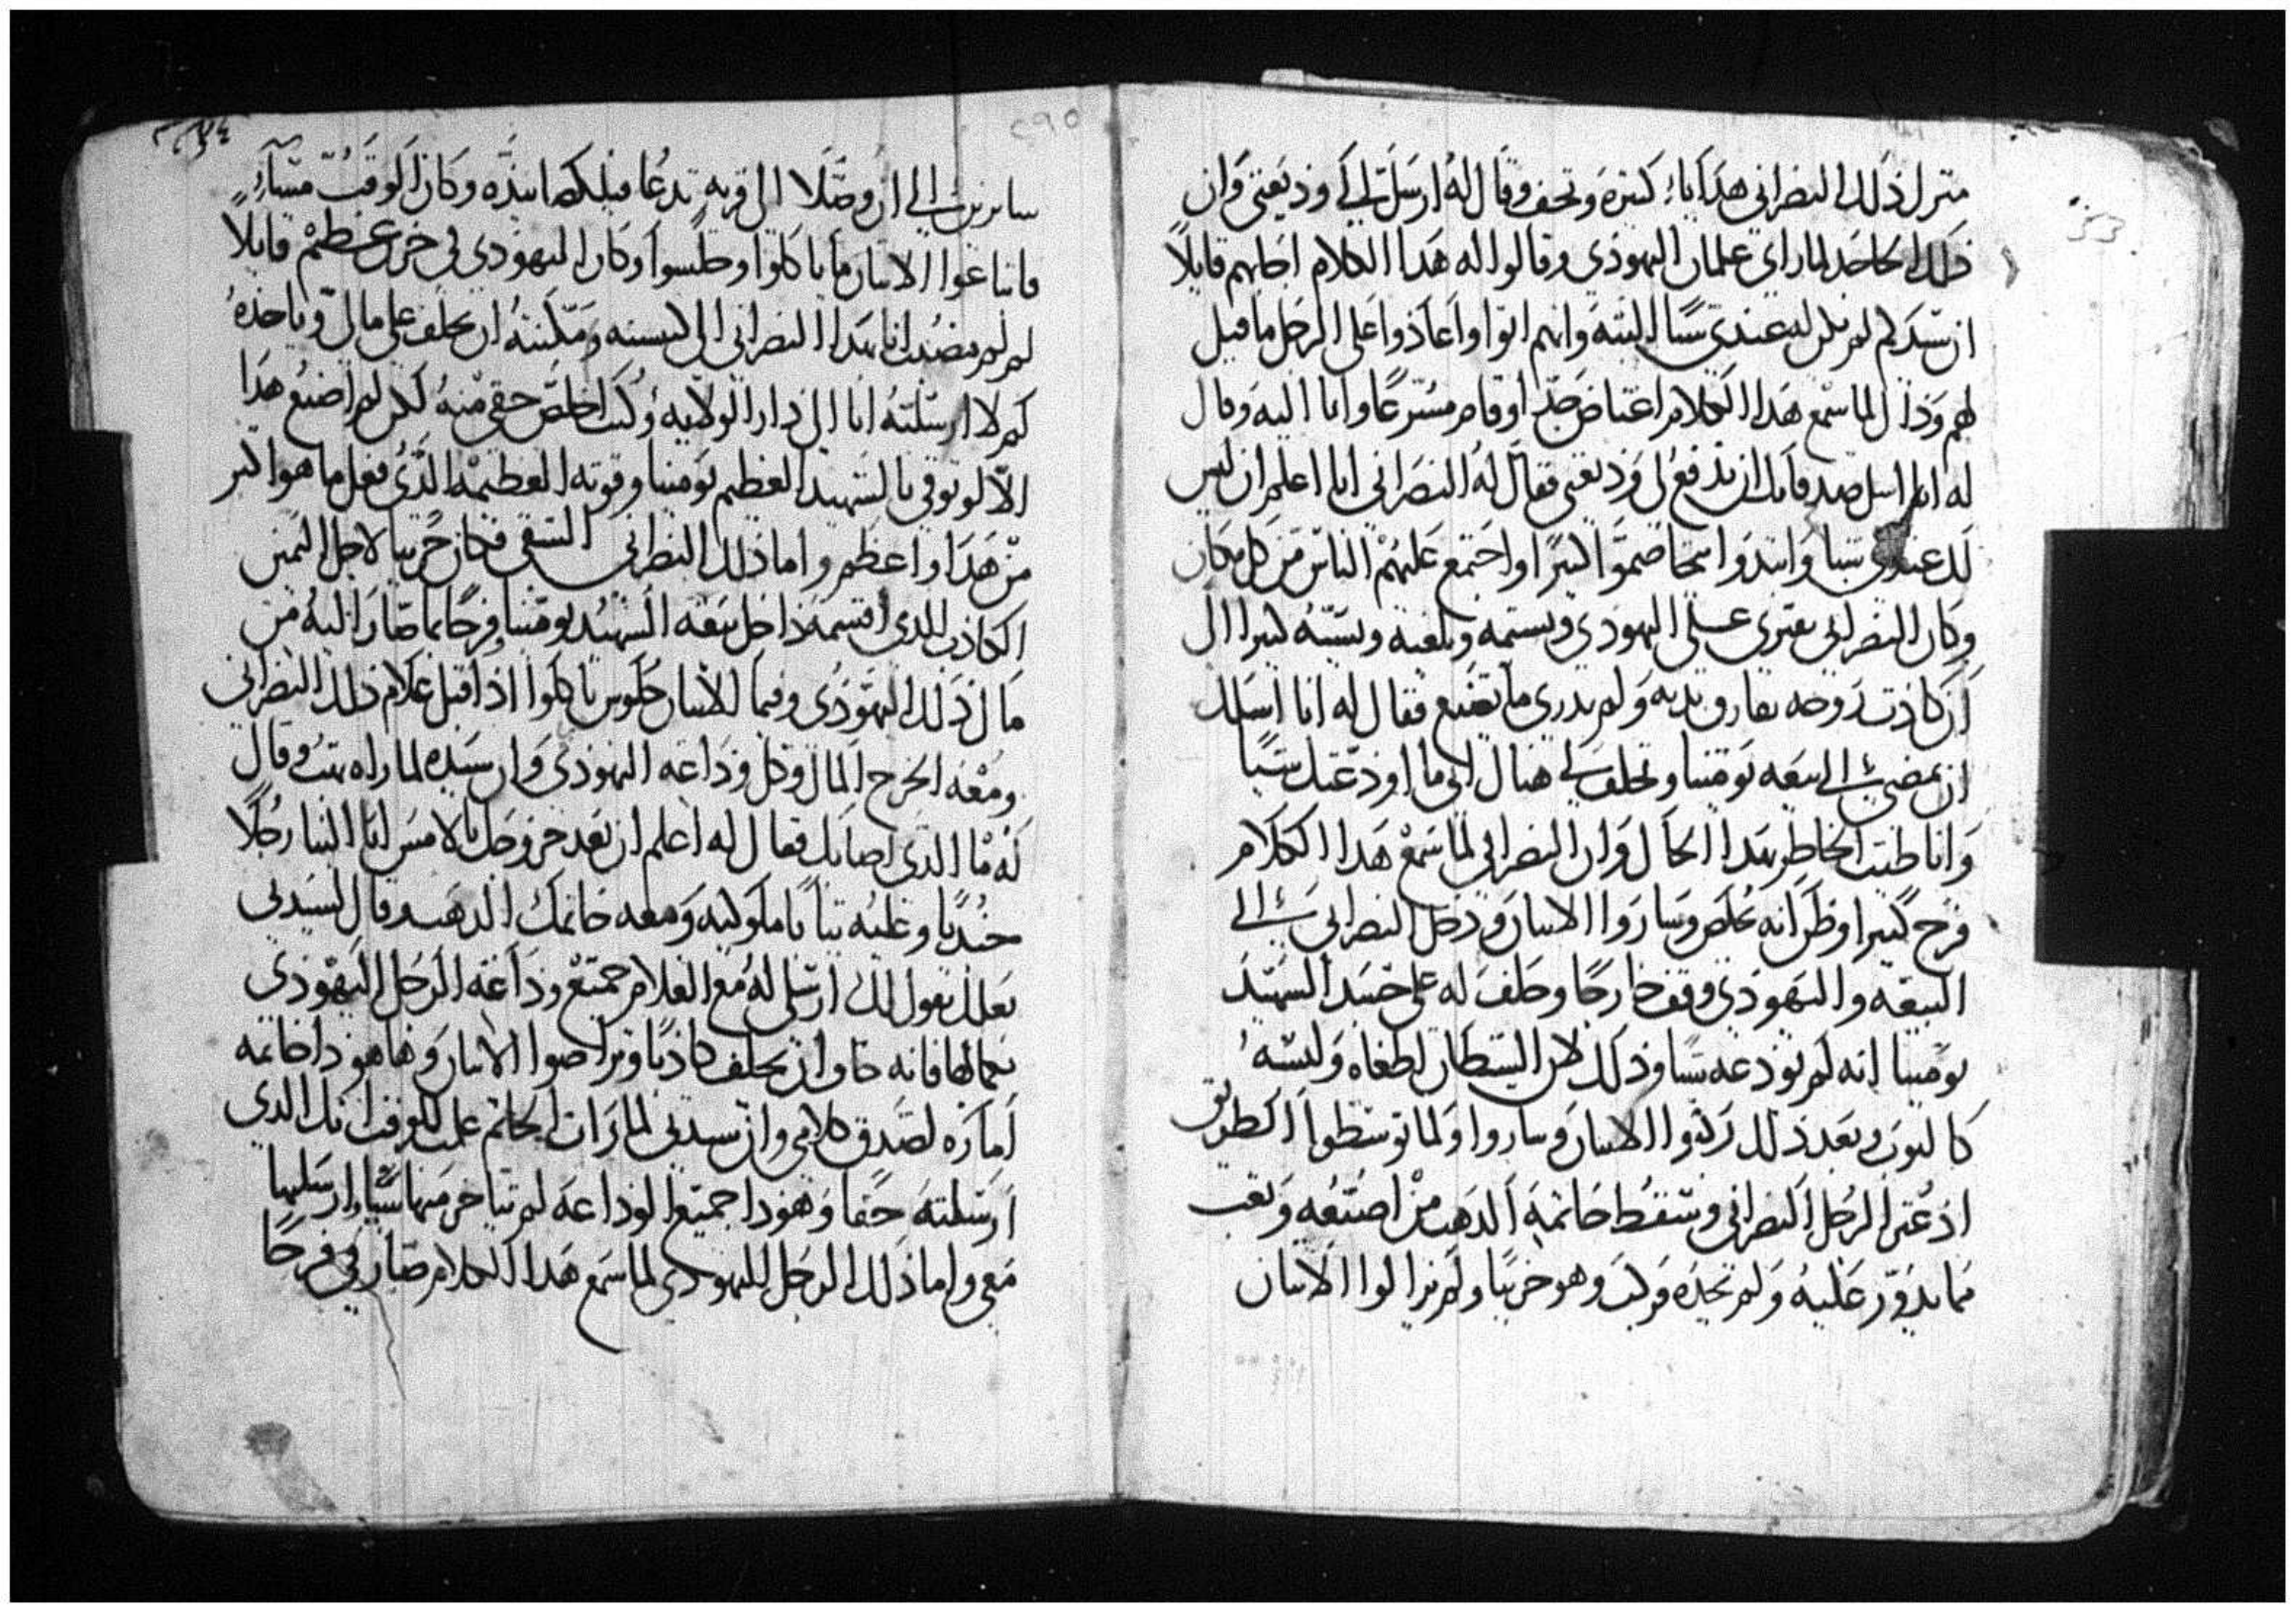 منزل ذلك النصراني هدايا كتيرة وتحف وقال له ارسل لي وديعتي وان
ذلك الجاحد لما راي غلمان اليهودي وقالوا له هدا الكلام اجابهم قايلا
ان سيدكم لم يكن له عندي شيا البتة وانهم اتوا واعادوا علي الرجل ما قيل
لهم وذاك لما سمع هدا الكلام اغتاض جدا وقام مسرعا واتا اليه وقال
له الم اسل صدقاتك ان تدفع لي وديعتي فقال له النصراني انا اعلم ان ليس
لك عندي شيا وابتدوا يتخاصموا كتيرا واجتمع عليهم الناس من كل مكان
وكان النصراني يفتري علي اليهودي ويشتمه ويلعنه ويسبه كتيرا الي
ان كادت روحه تفارق بدنه ولم يدري ما يصنع فقال له انا اسلك
ان تمضي بي الي بيعة بومينا وتحلف لي هناك اني ما اودعتك شيا
وانا طيب الخاطر بهدا الحال وان النصراني لما سمع هدا الكلام
فرح كتيرا وظن انه تخلص وساروا الاتنان ودخل النصراني الي
البيعة واليهودي وقف خارجا وحلف له علي جسد الشهيد
بومينا انه لم يودعه شيا ودلك لان الشيطان اطغاه ولبسه
كالتوب وبعد ذلك ركبوا الاتنان وساروا ولما توسطوا الطريق
اذ عتر الرجل النصراني وسقط خاتمه الدهب من اصبعه وتعب
مما يدور عليه ولم يجده فركب وهو حزينا ولم يزالوا الاتنان
سايرين الي ان وصلا الي قرية تدعا وكان الوقت مساء
فابتاعوا الاتنان ما ياكلوا وجلسوا وكان اليهودي في حزن عظيم قايلا
لم لم مضيت انا بهدا النصراني الي الكنيسه ومكنته ان يحلف علي مالي وياخده
كم لا ارسلته انا الي دار الولاية وكنت اخلص حقي منه لكن لم اصنع هدا
الا لوتوقي بالشهيد العظيم بومينا وقوته العظيمة الدي فعل ما هو اكبر
من هدا واعظم واما ذلك النصراني الشقي فكان حزينا لاجل اليمين
الكادب الدي اقسمه داخل بيعة الشهيد بومينا وفرحا بما صار اليه من
مال ذلك اليهودي وفيما الاتنان جلوس ياكلوا اذ اقبل غلام ذلك النصراني
ومعه الخرج المال وكل وداعة اليهودي وان سيده لما راه بهت وقال
له ما الدي اصابك فقال له اعلم ان بعد خروجك بالامس اتا الينا رجلا
جنديا وعليه تيابا ملوكية ومعه خاتمك الدهب وقال لسيدتي
بعلك يقول لك ارسلي له مع الغلام جميع وداعة الرجل اليهودي
بكمالها فانه خاف ان يحلف كادبا وتراضوا الاتنان وها هودا خاتمه
امارة لصدق كلامي وان سيدتي لما رات الخاتم علمت للوقت انك الدي
ارسلته حقا وهودا جميع الوداعة لم يتاخر منها شيا وارسلها
معي واما ذلك الرجل اليهودي لما سمع هدا الكلام صار في فرحا